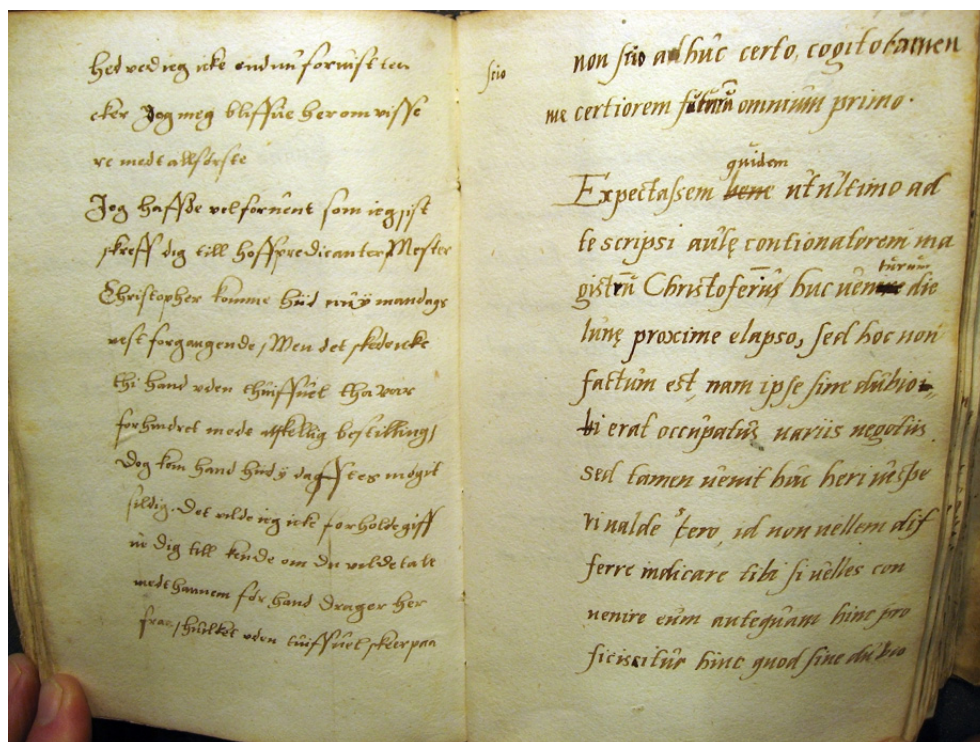 hed ved ieg icke endnu foruist ten
cker Jog meg bliffue her om visse
re medt allførste
Jog haffde vel foruent som ieg sist
skreff dig till hoffpredicanten Mester
Christopher komme hiid nu y mandags
nest forgangende, Men det skede icke
thi hand uden thuiffuel tha var
forhindret mede atskellig bestilling,
Dog kom hand hiid y
sildig. Det vilde ieg icke forholde giff
ue dig till kende om du vilde tale
medt hannem før hand drager her
fraa, huilket uden tuiffuel skeer paa
scio
non scio adhuc certo, cogito tamen
me certiorem futurum omnium primo.
quidem
Expectassem bene ut ultimo ad
te scripsi aulę contionatorem ma
turum
gistrū Christoferūs huc uenire die
lunę proxime elapso, sed hoc non
factum est, nam ipse sine dubio i
bi erat occupatus uariis negotiis
sed tamen uenit huc heri uespe
ri ualde sero, id non uellem dif
ferre indicare tibi si uelles con
uenire eum antequam hinc pro
ficiscitur hinc quod sine dubio